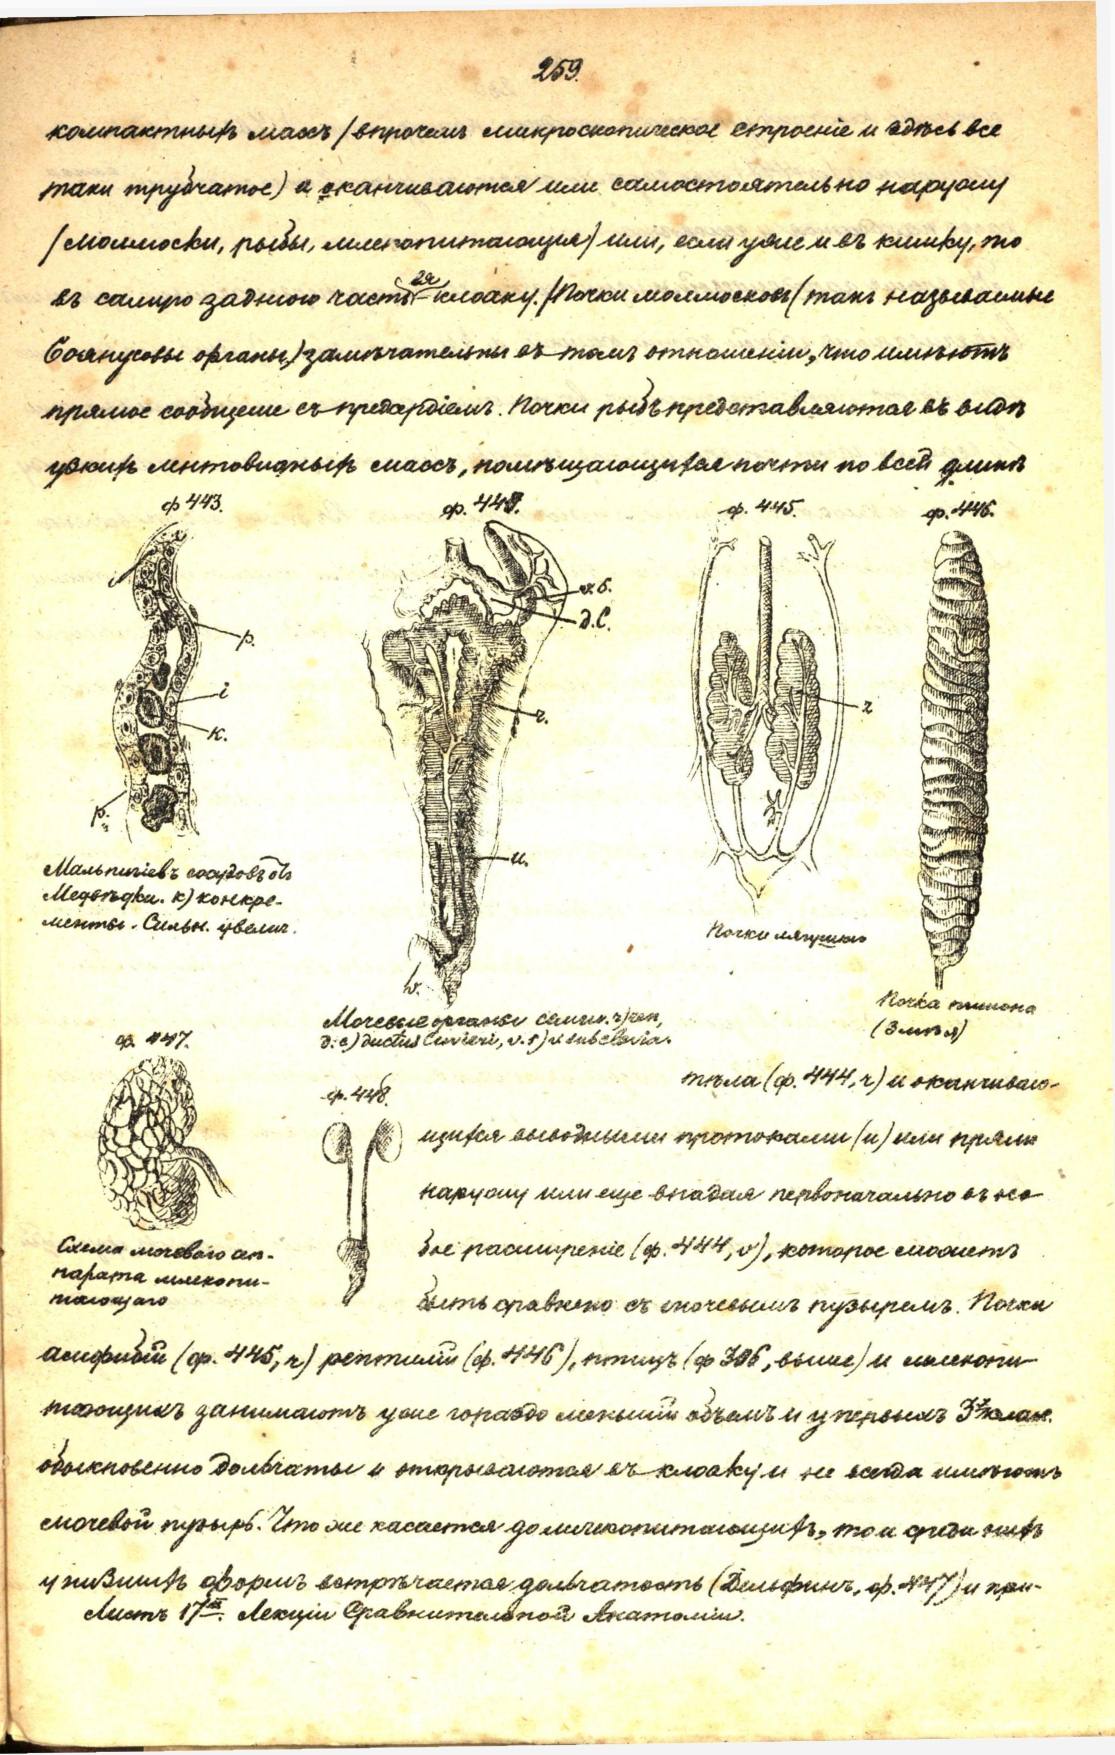 259.
компактныхъ массъ (впрочемъ микроскопическое строеніе и здѣсь все
таки трубчатое) и оканчиваются или самостоятельно наружу
(моллюски, рыбы, млекопитающія) или, если уже и въ кишку, то
въ самую заднюю часть ея клоаку. (Почки моллюсковъ (такъ называемые
Боянусовы органы) замѣчательны въ томъ отношеніи, что имѣютъ
прямое сообщеніе съ предсердіемъ. Почки рыбъ представляются въ видѣ
узкихъ лентовидныхъ массъ, помѣщающихся почти по всей длинѣ
ф 443.
ф. 444.
ф. 445.
ф. 446.
v.s.
d.C.
p.
i
к.
p.
r.
u.
v.
r
Мальпигіевъ сосудъ отъ
Медвѣдки. к) конкре-
менты. Сильн. увелич.
Почки лягушки
Почка питона
(Змѣя)
Мочевые органы семги. r) рен,
d.c) ductus Cuvieri, v.s) v. subclavia.
ф. 447.
ф. 448.
Схема мочевого ап-
парата млекопи-
тающаго
тѣла (ф. 444, r) и оканчиваю-
щихся выводными протоками (u) или прямо
наружу или еще впадая первоначально въ осо-
бое расширеніе (ф. 444, v), которое можетъ
быть сравнено съ мочевымъ пузыремъ. Почки
амфибій (ф. 445, r) рептилій (ф. 446), птицъ (ф 306, выше) и млекопи-
тающихъ занимаютъ уже гораздо меньшій объемъ и у первыхъ 3хъ клас.
обыкновенно дольчаты и открываются въ клоаку и не всегда имѣютъ
мочевой пузырь. Что же касается до млекопитающихъ, то и среди нихъ
у низшихъ формъ встрѣчается дольчатость (Дельфинъ, ф. 447) и при-
Листъ 17й. Лекціи Сравнительной Анатоміи.